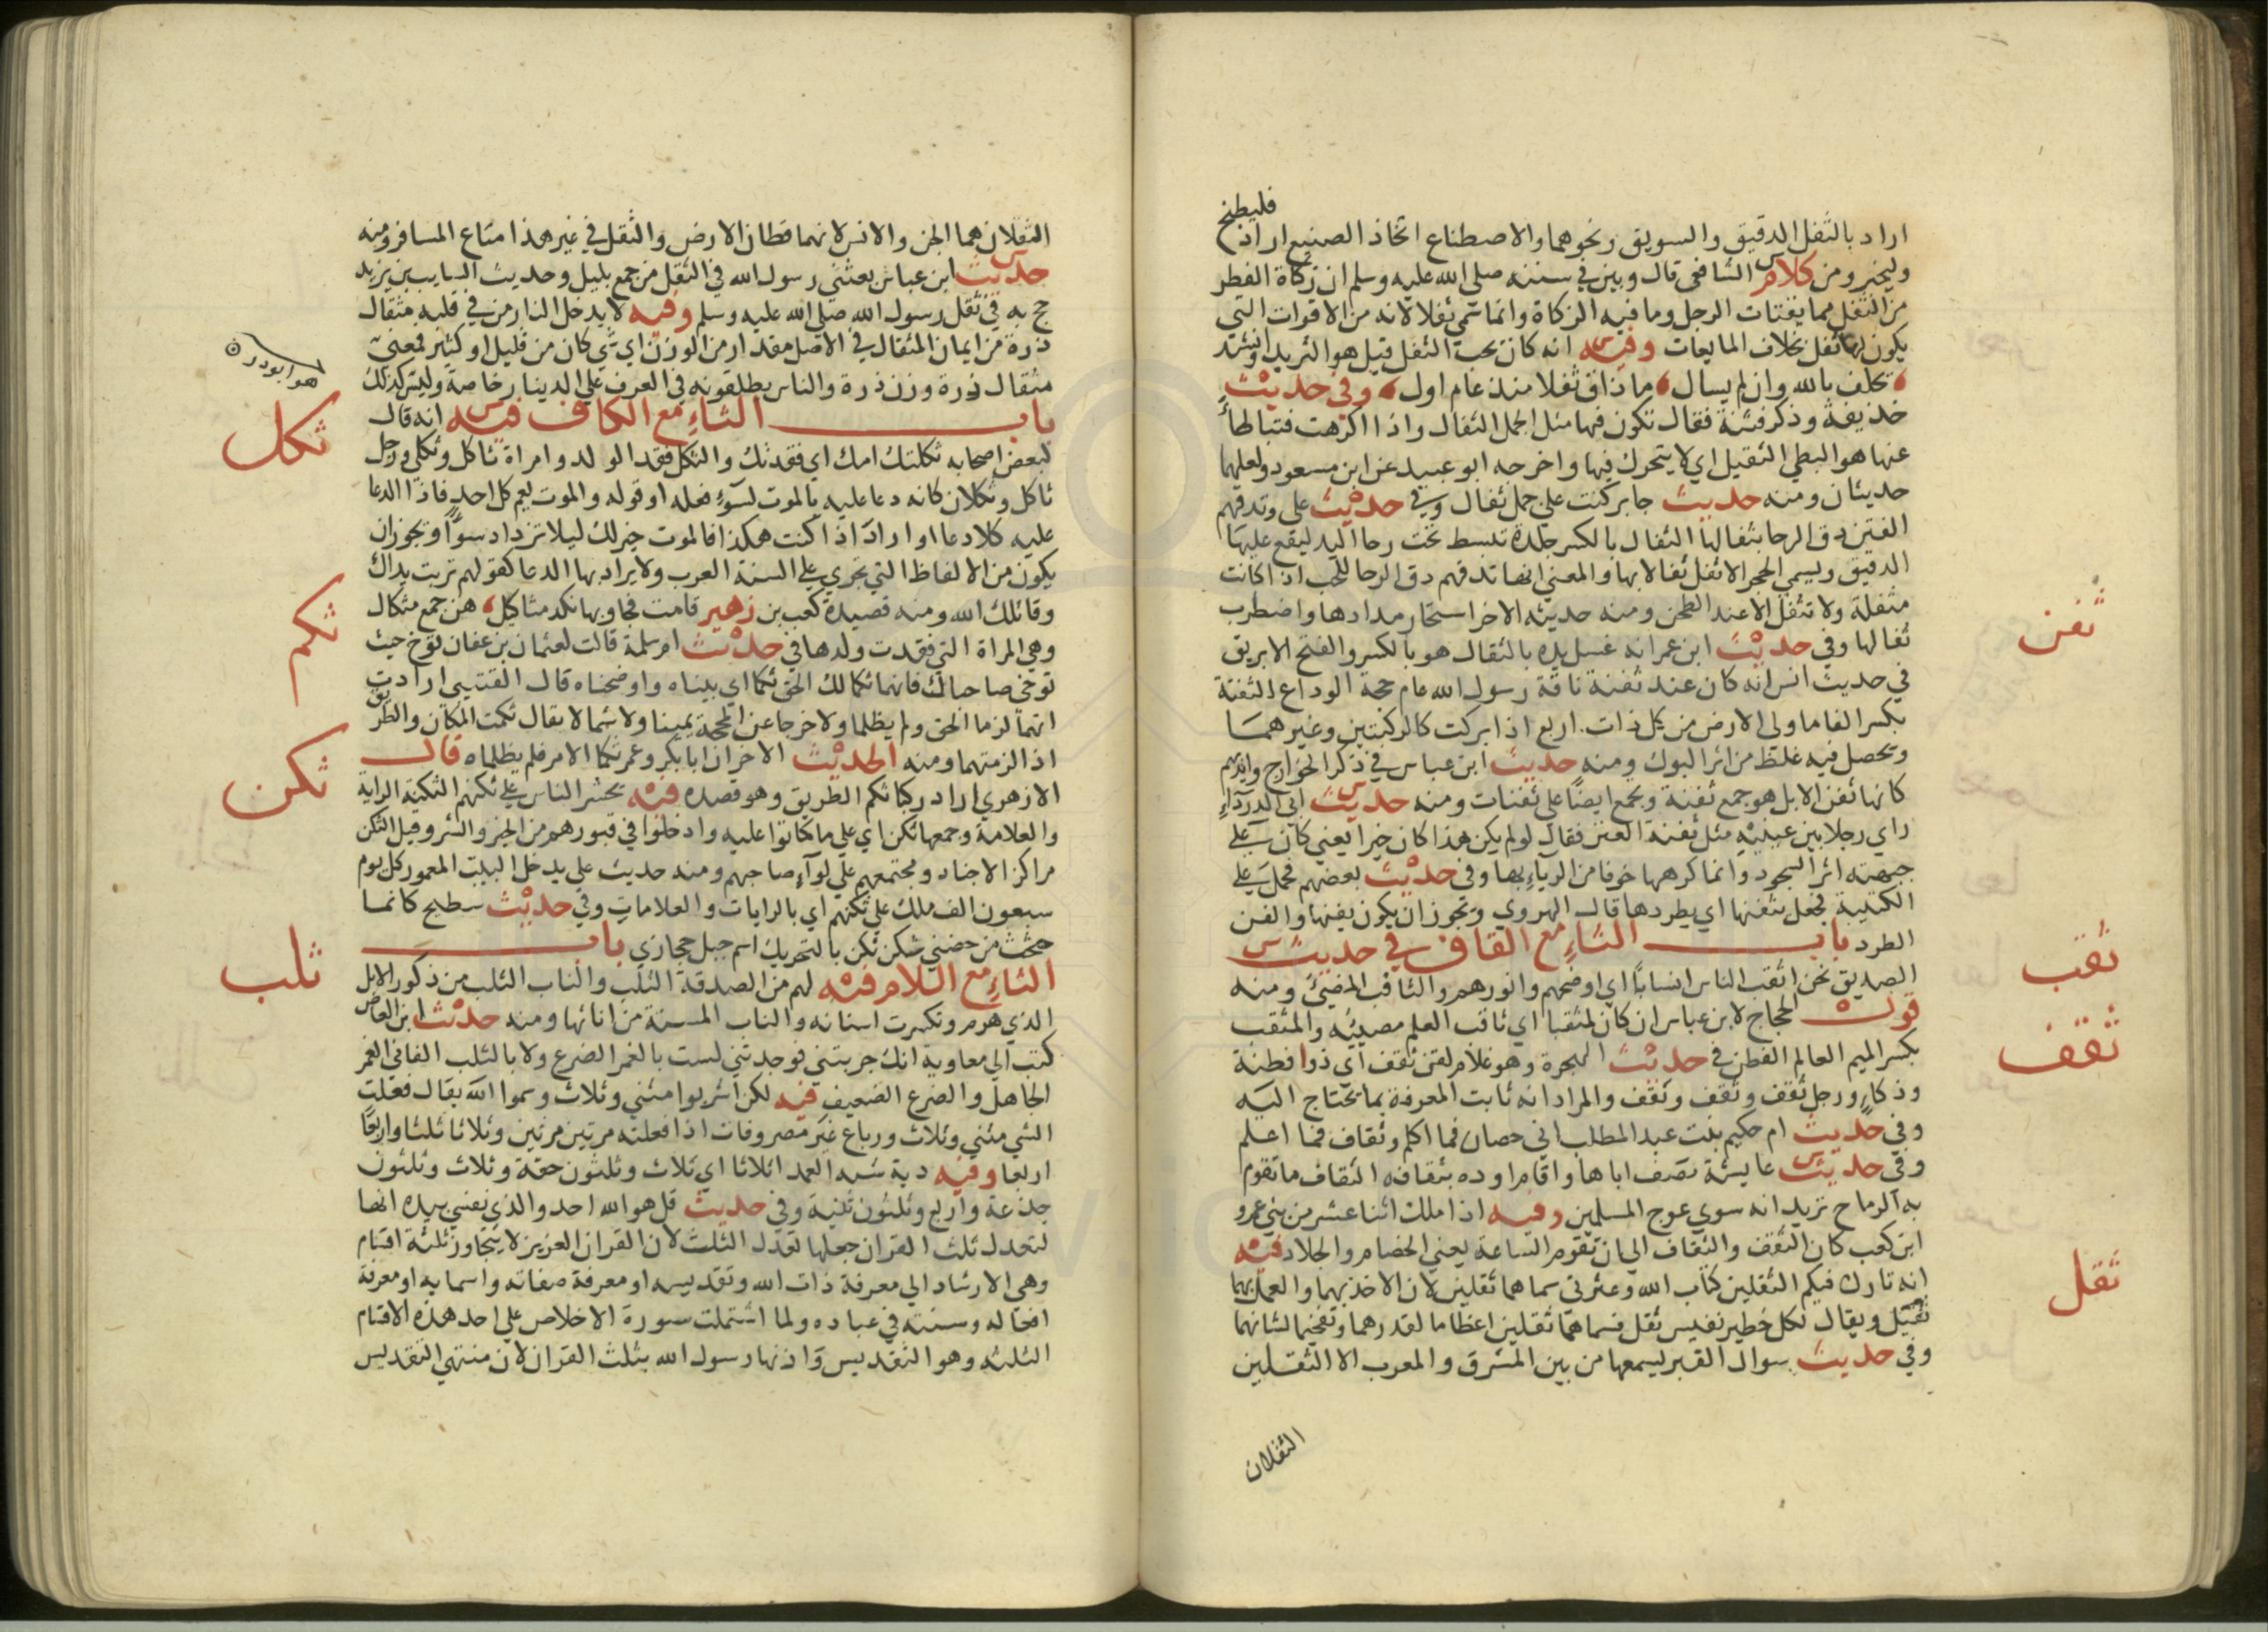 فليطبخ
اراد بالثفل الدقيق والسويق ونحوهما والاصطناع اتخاذ الصنيع اراد
وليخبز ومن كلام الشافعي قال وبين في سننه صلي الله عليه وسلم ان زكاة الفطر
من الثفل مما يقتات الرجل وما فيه الزكاة وانما سمي ثفلا لانه من الاقوات التي
يكون لها ثفل بخلاف المايعات وفيه انه كان يحب الثفل قيل هو الثريد وانشد
يحلف بالله وان لم يسال ما ذاق ثفلا منذ عام اول وفي حديث
حذيفة وذكر فتنة فقال تكون فيها مثل الجمل الثفال واذا اكرهت فتباطأ
عنها هو البطي الثقيل اي لا يتحرك فيها واخرجه ابو عبيد عن ابن مسعود ولعلهما
حديثان ومنه حديث جابر كنت علي جمل ثفال وفي حديث علي وتدقهم
الفتن دق الرحا بثفالها الثفال بالكسر جلدة تبسط تحت رحا اليد ليقع عليها
الدقيق ويسمي الحجر الاثفل ثفالا بها والمعني انها تدقهم دق الرحا للحب اذا كانت
مثفلة ولا تثفل الا عند الطحن ومنه حديثه الاخر استحار مدادها واضطرب
ثفالها وفي حديث ابن عمر انه غسل يده بالثفال هو بالكسر والفتح الابريق
في حديث انس انه كان عند ثفنة ناقة رسول الله عام حجة الوداع الثفنة
بكسر الفا ما ولي الارض من كل ذات اربع اذا بركت كالركبتين وغيرهما
ويحصل فيه غلظ من اثر البروك ومنه حديث ابن عباس في ذكر الخوارج وايديهم
كانها ثفن الابل هو جمع ثفنة ويجمع ايضا علي ثفنات ومنه حديث ابي الدرداء
راي رجلا بين عينيه مثل ثفنة العنز فقال لو لم يكن هذا كان خيرا يعني كان علي
جبهته اثر السجود وانما كرهها خوفا من الرياء بها وفي حديث بعضهم فحمل علي
الكتيبة فجعل يثفنها اي يطردها قال الهروي ويجوز ان يكون يفنها والفن
الطرد باب الثاء مع القاف في حديث
الصديق نحن اثقب الناس انسابا اي اوضحهم وانورهم والثاقب المضيئ ومنه
قول الحجاج لابن عباس ان كان لمثقبا اي ثاقب العلم مضيئه والمثقب
بكسر الميم العالم الفطن في حديث الهجرة وهو غلام لقن ثقف اي ذوا فطنة
وذكاء ورجل ثقف وثقف وثقف والمراد انه ثابت المعرفة بما يحتاج اليه
وفي حديث ام حكيم بنت عبد المطلب اني حصان فما اكلم وثقاف فما اعلم
وفي حديث عايشة تصف اباها واقام اوده بثقافه الثقاف ما تقوم
به الرماح تريد انه سوي عوج المسلمين وفيه اذا ملك اثنا عشر من بني عمرو
ابن كعب كان الثقف والثقاف الي ان تقوم الساعة يعني الخصام والجلاد فيه
انه تارك فيكم الثقلين كتاب الله وعترتي سماهما ثقلين لان الاخذ بهما والعمل بهما
ثقيل ويقال لكل خطير نفيس ثقل فسماهما ثقلين اعظاما لقدرهما وتفخيما لشانهما
وفي حديث سوال القبر ليسمعها من بين المشرق والمغرب الا الثقلين
الثقلان
ثفن
ثقب
ثقف
ثقل
الثقلان هما الجن والانس لانهما قطان الارض والثقل في غير هذا متاع المسافر ومنه
حديث ابن عباس بعثني رسول الله في الثقل من جمع بليل وحديث السايب بن يزيد
حج به في ثقل رسول الله صلي الله عليه وسلم وفيه لا يدخل النار من في قلبه مثقال
ذرة من ايمان المثقال في الاصل مقدار من الوزن اي شي كان من قليل او كثير فمعني
مثقال ذرة وزن ذرة والناس يطلقونه في العرف علي الدينار خاصة وليس كذلك
باب الثاء مع الكاف فيه انه قال
لبعض اصحابه ثكلتك امك اي فقدتك والثكل فقد الولد وامراة ثاكل وثكلي ورجل
ثاكل وثكلان كانه دعا عليه بالموت لسوء فعله او قوله والموت يعم كل احد فاذا الدعا
عليه كلا دعا او اراد اذا كنت هكذا فالموت خير لك ليلا تزداد سوءا ويجوز ان
يكون من الالفاظ التي تجري علي السنة العرب ولا يراد بها الدعا كقولهم تربت يداك
وقاتلك الله ومنه قصيدة كعب بن زهير قامت فجاوبها نكد مثاكيل هن جمع مثكال
وهي المراة التي فقدت ولدها في حديث ام سلمة قالت لعثمان بن عفان توخ حيث
توخي صاحباك فانهما ثكما لك الحق ثكما اي بيناه واوضحناه قال القتيبي ارادت
انهما لزما الحق ولم يظلما ولا خرجا عن المحجة يمينا ولا شمالا يقال ثكمت المكان والطريق
اذا لزمتهما ومنه الحديث الاخر ان ابا بكر وعمر ثكما الامر فلم يظلماه قال
الازهري اراد ركبا ثكم الطريق وهو قصده فيه يحشر الناس علي ثكنهم الثكنة الراية
والعلامة وجمعها ثكن اي علي ما كانوا عليه وادخلوا في قبورهم من الخير والشر وقيل الثكن
مراكز الاجناد ومجتمعهم علي لواء صاحبهم ومنه حديث علي يدخل البيت المعمور كل يوم
سبعون الف ملك علي ثكنهم اي بالرايات والعلامات وفي حديث سطيح كانما
حثحث من حضني ثكن ثكن بالتحريك اسم جبل حجازي باب
الثاء مع اللام فيه لهم من الصدقة الثلب والناب الثلب من ذكور الابل
الذي هرم وتكسرت اسنانه والناب المسنة من اناثها ومنه حديث ابن العاص
كتب الي معاوية انك جربتني فوجدتني لست بالغمر الضرع ولا بالثلب الفاني الغمر
الجاهل والضرع الضعيف فيه لكن اشربوا مثني وثلاث وسموا الله يقال فعلت
الشي مثني وثلاث ورباع غير مصروفات اذا فعلته مرتين مرتين وثلاثا ثلثا واربعا
اربعا وفيه دية شبه العمد اثلاثا اي ثلاث وثلثون حقة وثلاث وثلثون
جذعة واربع وثلثون ثنية وفي حديث قل هو الله احد والذي نفسي بيده انها
لتعدل ثلث القران جعلها تعدل الثلث لان القران العزيز لا يتجاوز ثلثة اقسام
وهي الارشاد الي معرفة ذات الله وتقديسه او معرفة صفاته واسمايه او معرفة
افعاله وسنته في عباده ولما اشتملت سورة الاخلاص علي احد هذه الاقسام
الثلثه وهو التقديس وازنها رسول الله بثلث القران لان منتهي التقديس
ثكل
ثكم
ثكن
ثلب